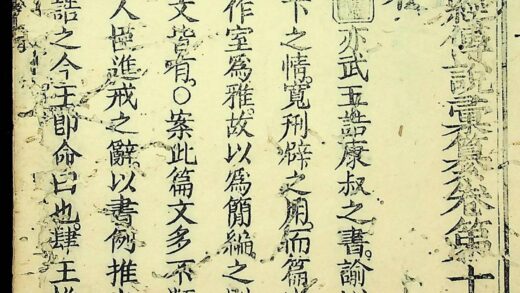 經傳說彙纂卷第十
亦武王誥康叔之書。諭
下之情。寬刑辟之用。而篇
作室為雅。故以為簡編之
文皆有。○案此篇文多不
人臣進戒之辭。以書例推
誥之今王即命曰也。肆王